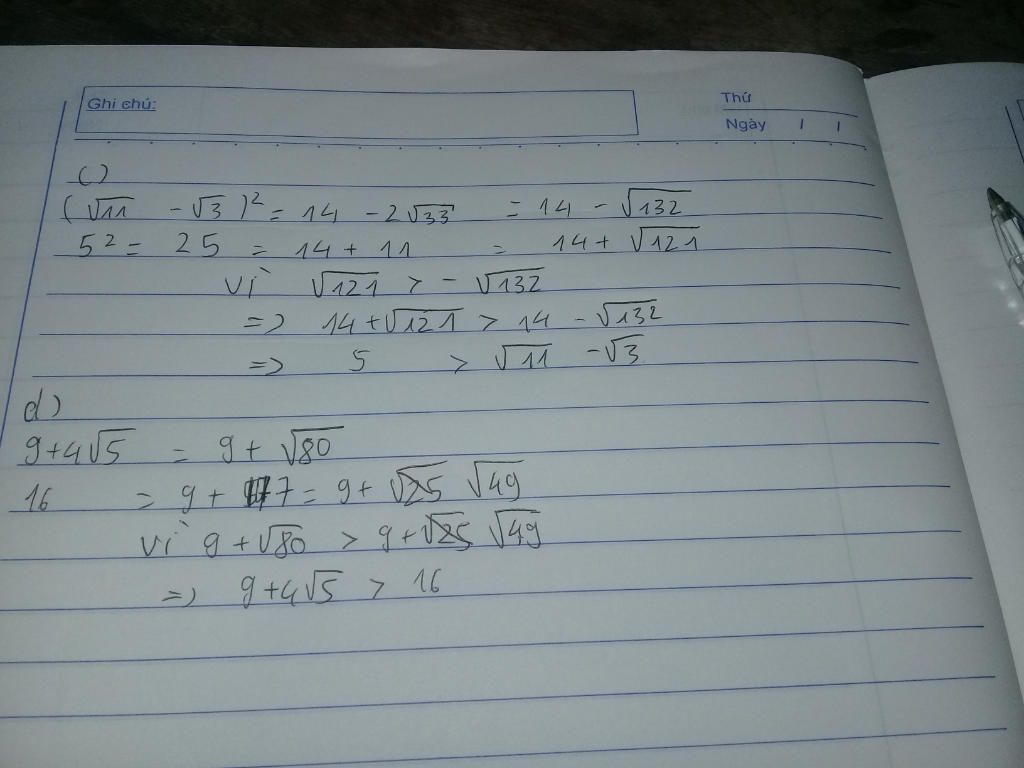 Ghi chú:
Thứ
Ngày / /
c)
(√11 - √3)² = 14 - 2√33 = 14 - √132
5² = 25 = 14 + 11 = 14 + √121
Vì √121 > - √132
=> 14 + √121 > 14 - √132
=> 5 > √11 - √3
d)
9 + 4√5 = 9 + √80
16 = 9 + 7 = 9 + √49
Vì 9 + √80 > 9 + √49
=> 9 + 4√5 > 16